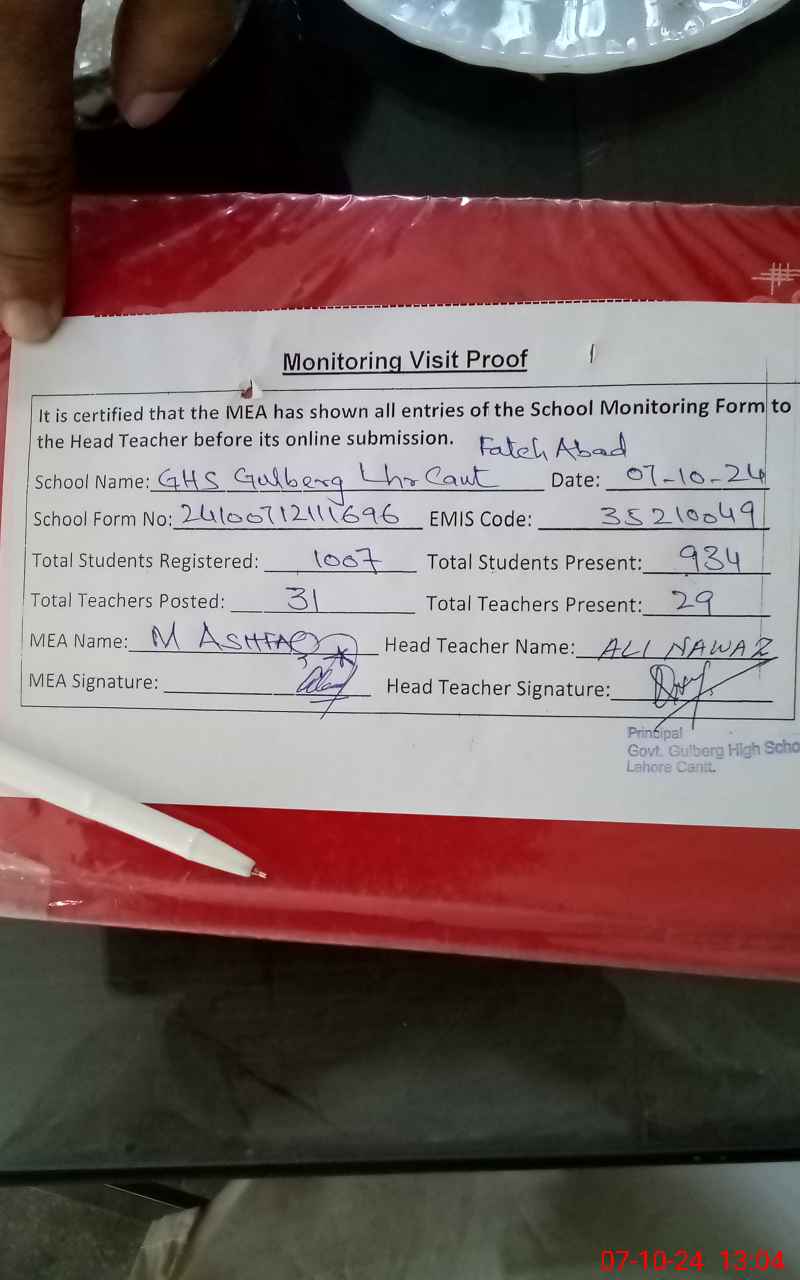 Monitoring Visit Proof
It is certified that the MEA has shown all entries of the School Monitoring Form to
the Head Teacher before its online submission. Fateh Abad
School Name: GHS Gulberg Lhr Cantt Date: 07-10-24
School Form No: 2410071211 1696 EMIS Code: 35210049
Total Students Registered: 1007 Total Students Present: 934
Total Teachers Posted: 31 Total Teachers Present: 29
MEA Name: M ASHFAQ Head Teacher Name: ALI NAWAZ
MEA Signature: Head Teacher Signature:
Principal
Govt. Gulberg High Scho
Lahore Cantt.
07-10-24 13:04